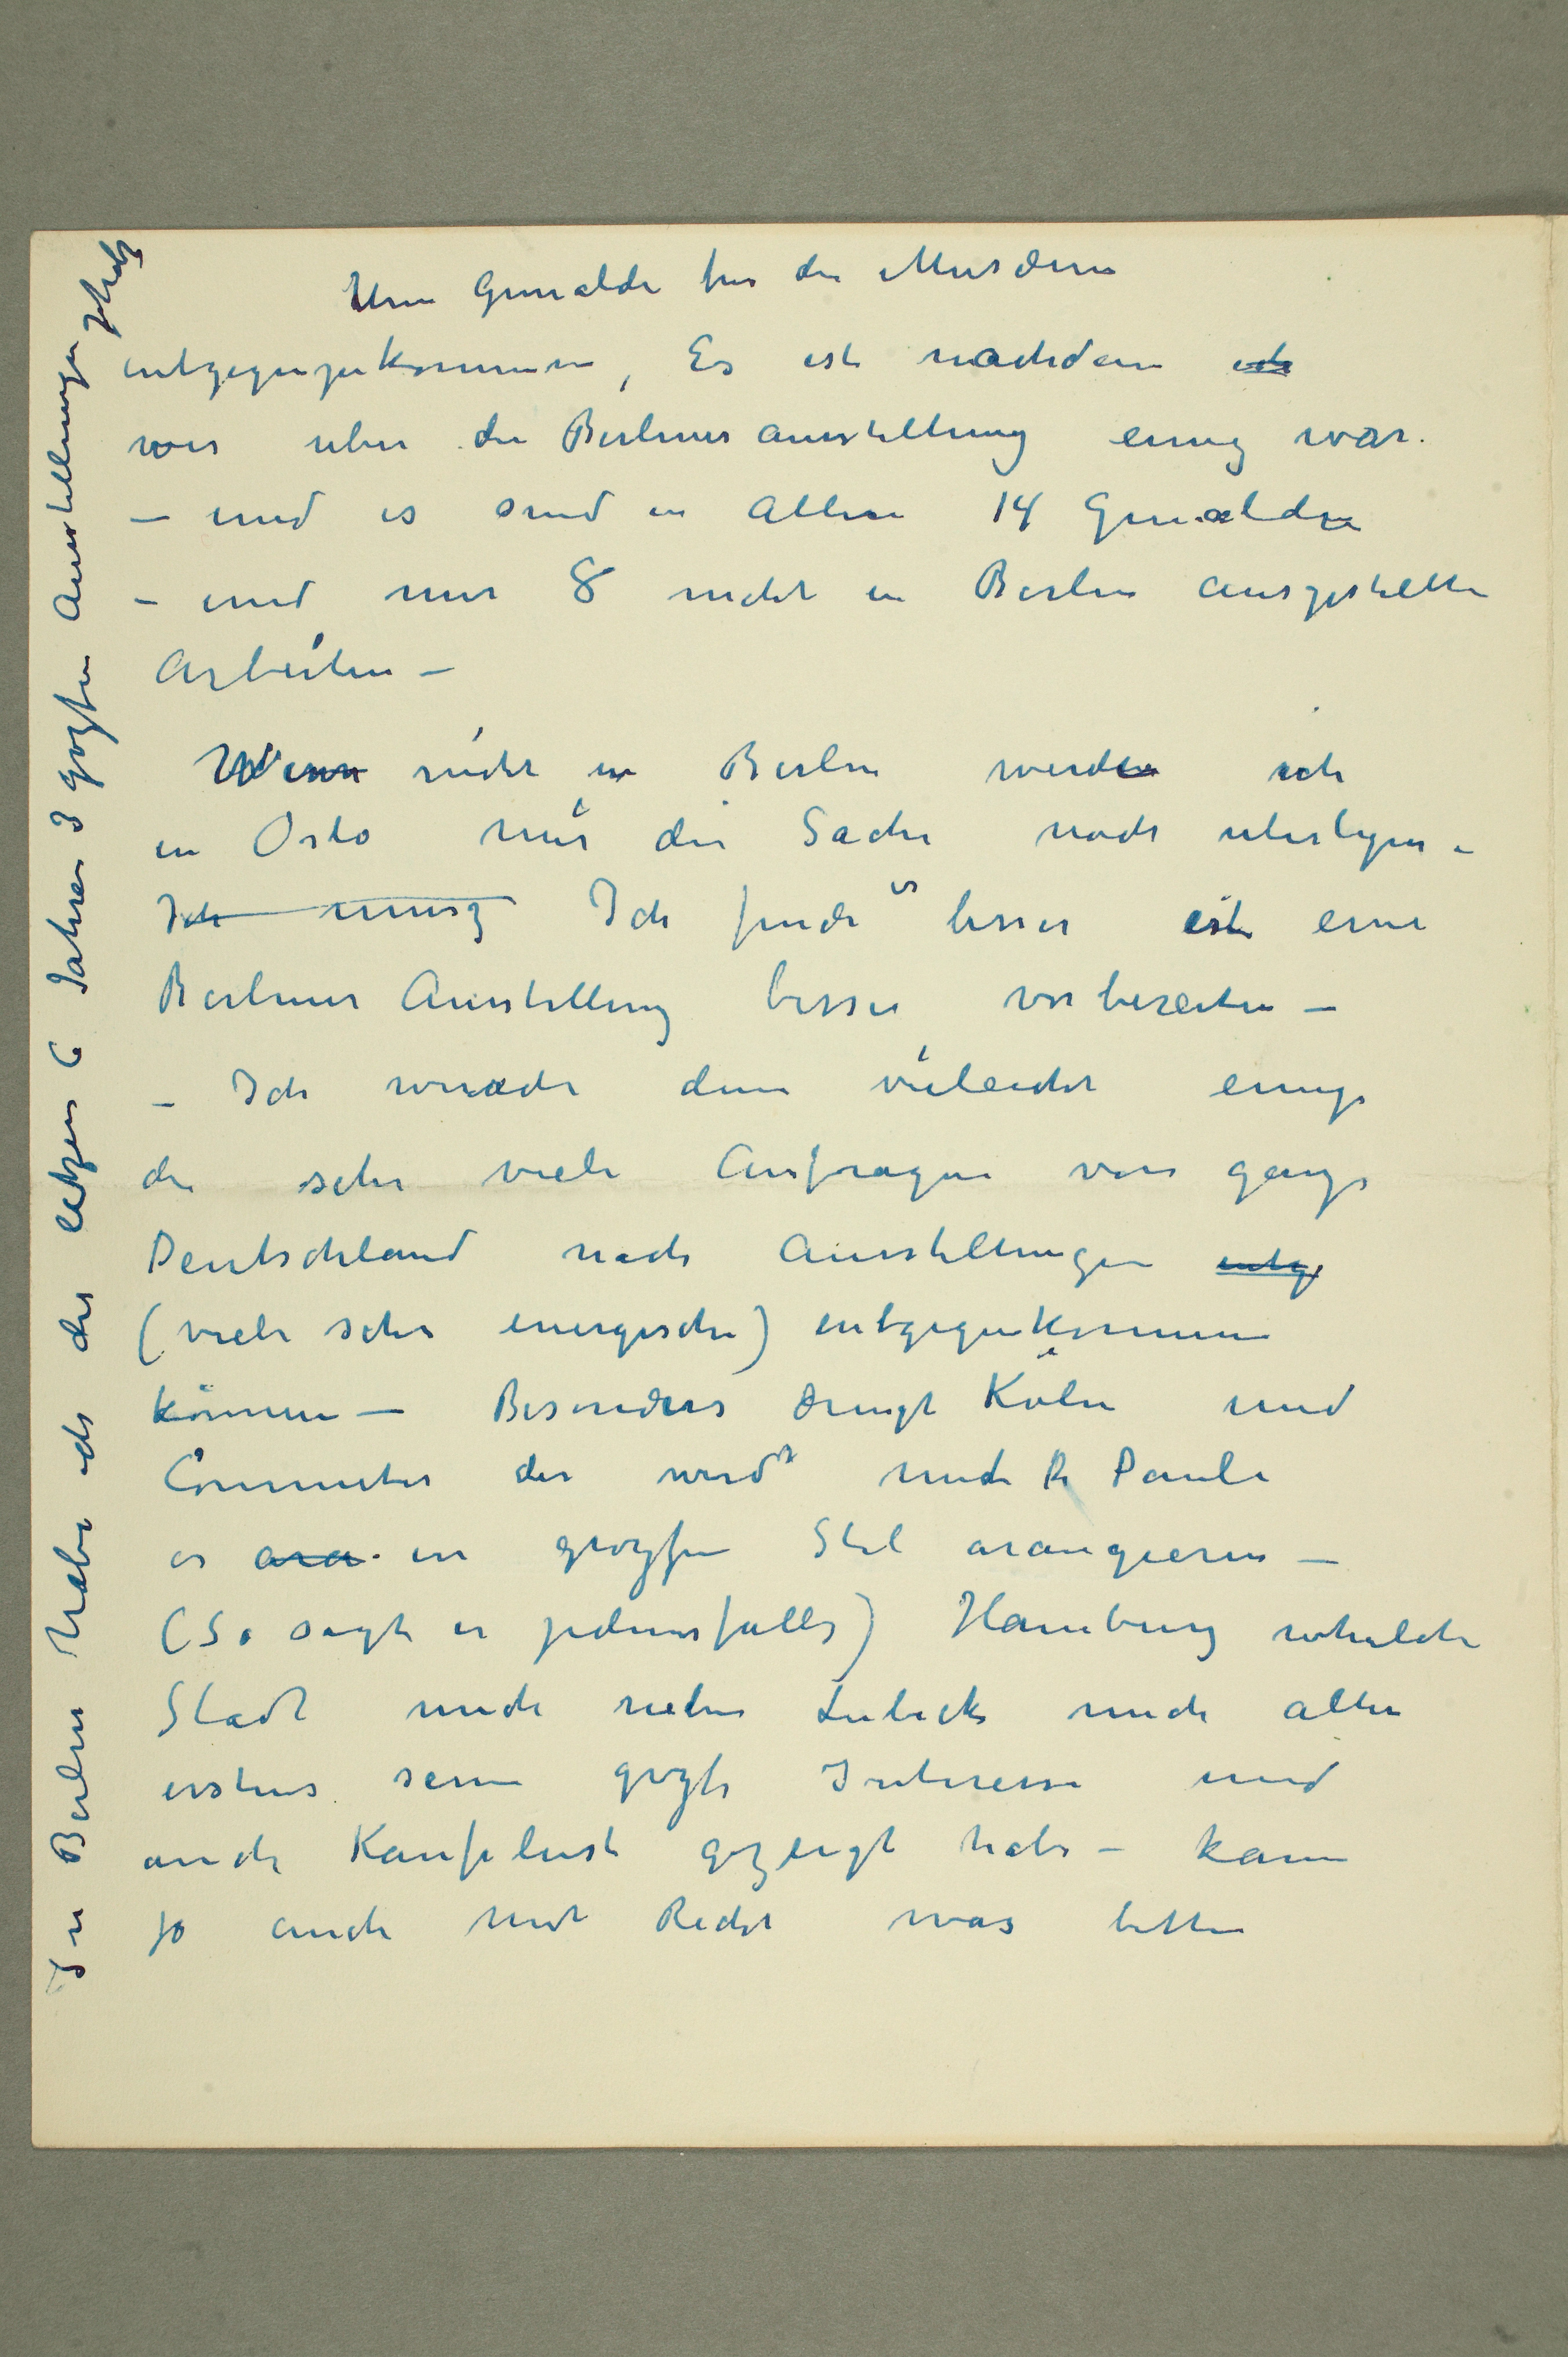 Um Gemälde für die Museum
entgegenzukommen, Es ist nachdem ich
wir uber die Berliner ausstellung einig war.
– und es sind in Allem 14 Gemälden
– und nur 8 nicht in Berlin ausgestellte
Arbeiten –
Wenn nicht in Berlin werde ich
in Oslo mir die Sache noch uberlegen –
Ich musz Ich finde es besser ist eine
Berliner Ausstellung besser vorbereiten –
– Ich werde denn vieleicht einige
die sehr viele Anfragen von ganze
Deutschland nach Ausstellungen entg
(viele sehr energische) entgegenkommen
können – Besonders dringt Köln und
Commeter der wird mit Dr Pauli
es ara in groszen Stil arangieren –
(So sagt er jedenfalls) Hamburg welche
Stadt mich neben Lubeck mich aller
erstens seine grosze Interesse und
auch Kaufelust gezeigt habe – kann
jo auch mit Recht was bitten
In Berlin habe ich die letzen 6 Jahren 3 groszen Ausstellungen gehabt